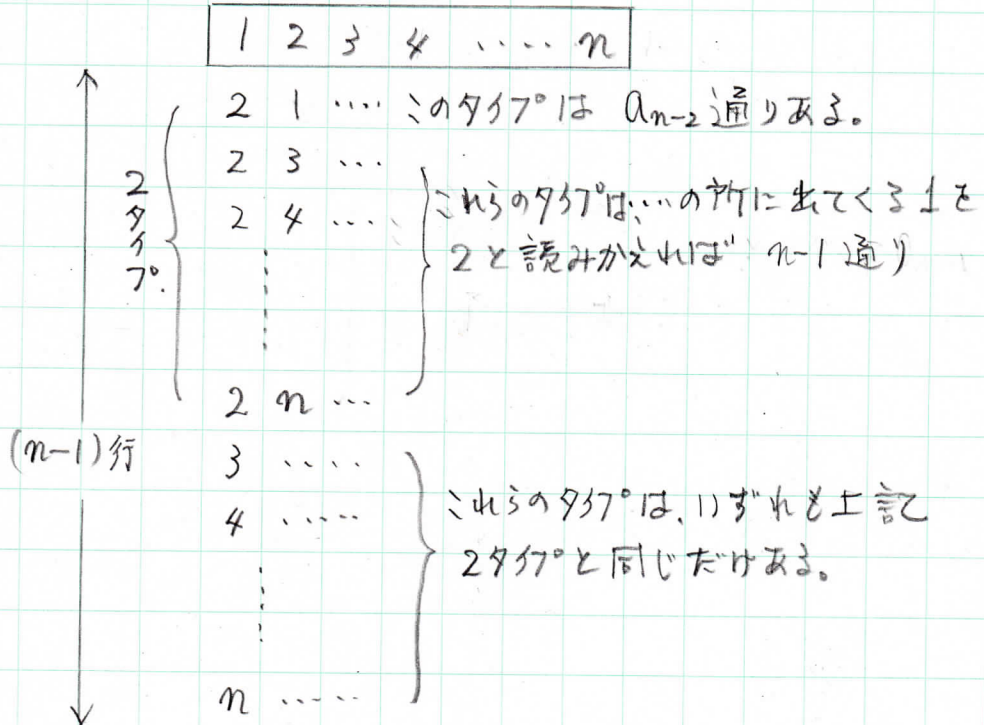 1 2 3 4 ‥‥ n
2 1 ‥‥ このタイプは a_{n-2} 通りある。
2 3 ‥
2 4 ‥‥
2タイプ.
これらのタイプは…の所に出てくる1を
2と読みかえれば n-1通り
2 n ‥
(n-1)行
3 ‥‥
4 ‥‥
これらのタイプは、いずれも上記
2タイプと同じだけある。
n ‥‥